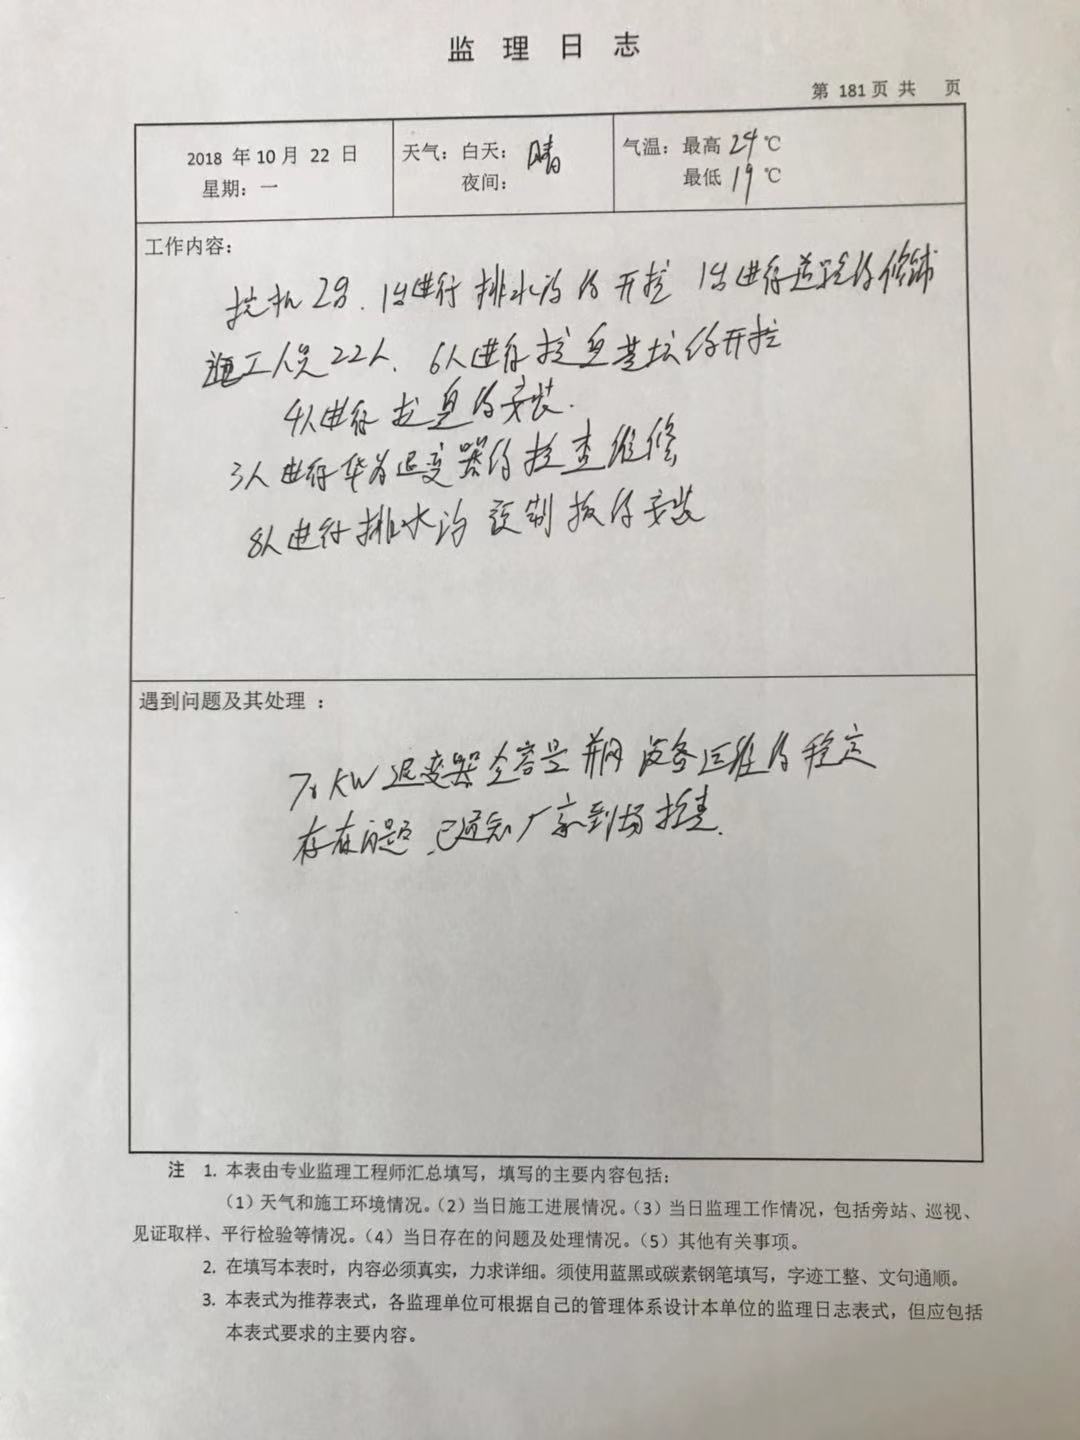 监理日志
第 181 页 共 页
2018 年 10 月 22 日
星期：一
天气：白天：晴
夜间：
气温：最高 24 ℃
最低 19 ℃
工作内容：
挖机2台、1台进行排水沟的开挖 1台进行道路的修铺
施工人员22人、6人进行拉线基坑的开挖
4人进行的安装.
3人进行华为逆变器的检查维修
8人进行排水沟预制板的安装
遇到问题及其处理：
KW逆变器全容量并网设备运维的稳定
存在问题、已通知厂家到场检查.
注 1. 本表由专业监理工程师汇总填写，填写的主要内容包括：
（1）天气和施工环境情况。（2）当日施工进展情况。（3）当日监理工作情况，包括旁站、巡视、
见证取样、平行检验等情况。（4）当日存在的问题及处理情况。（5）其他有关事项。
2. 在填写本表时，内容必须真实，力求详细。须使用蓝黑或碳素钢笔填写，字迹工整、文句通顺。
3. 本表式为推荐表式，各监理单位可根据自己的管理体系设计本单位的监理日志表式，但应包括
本表式要求的主要内容。